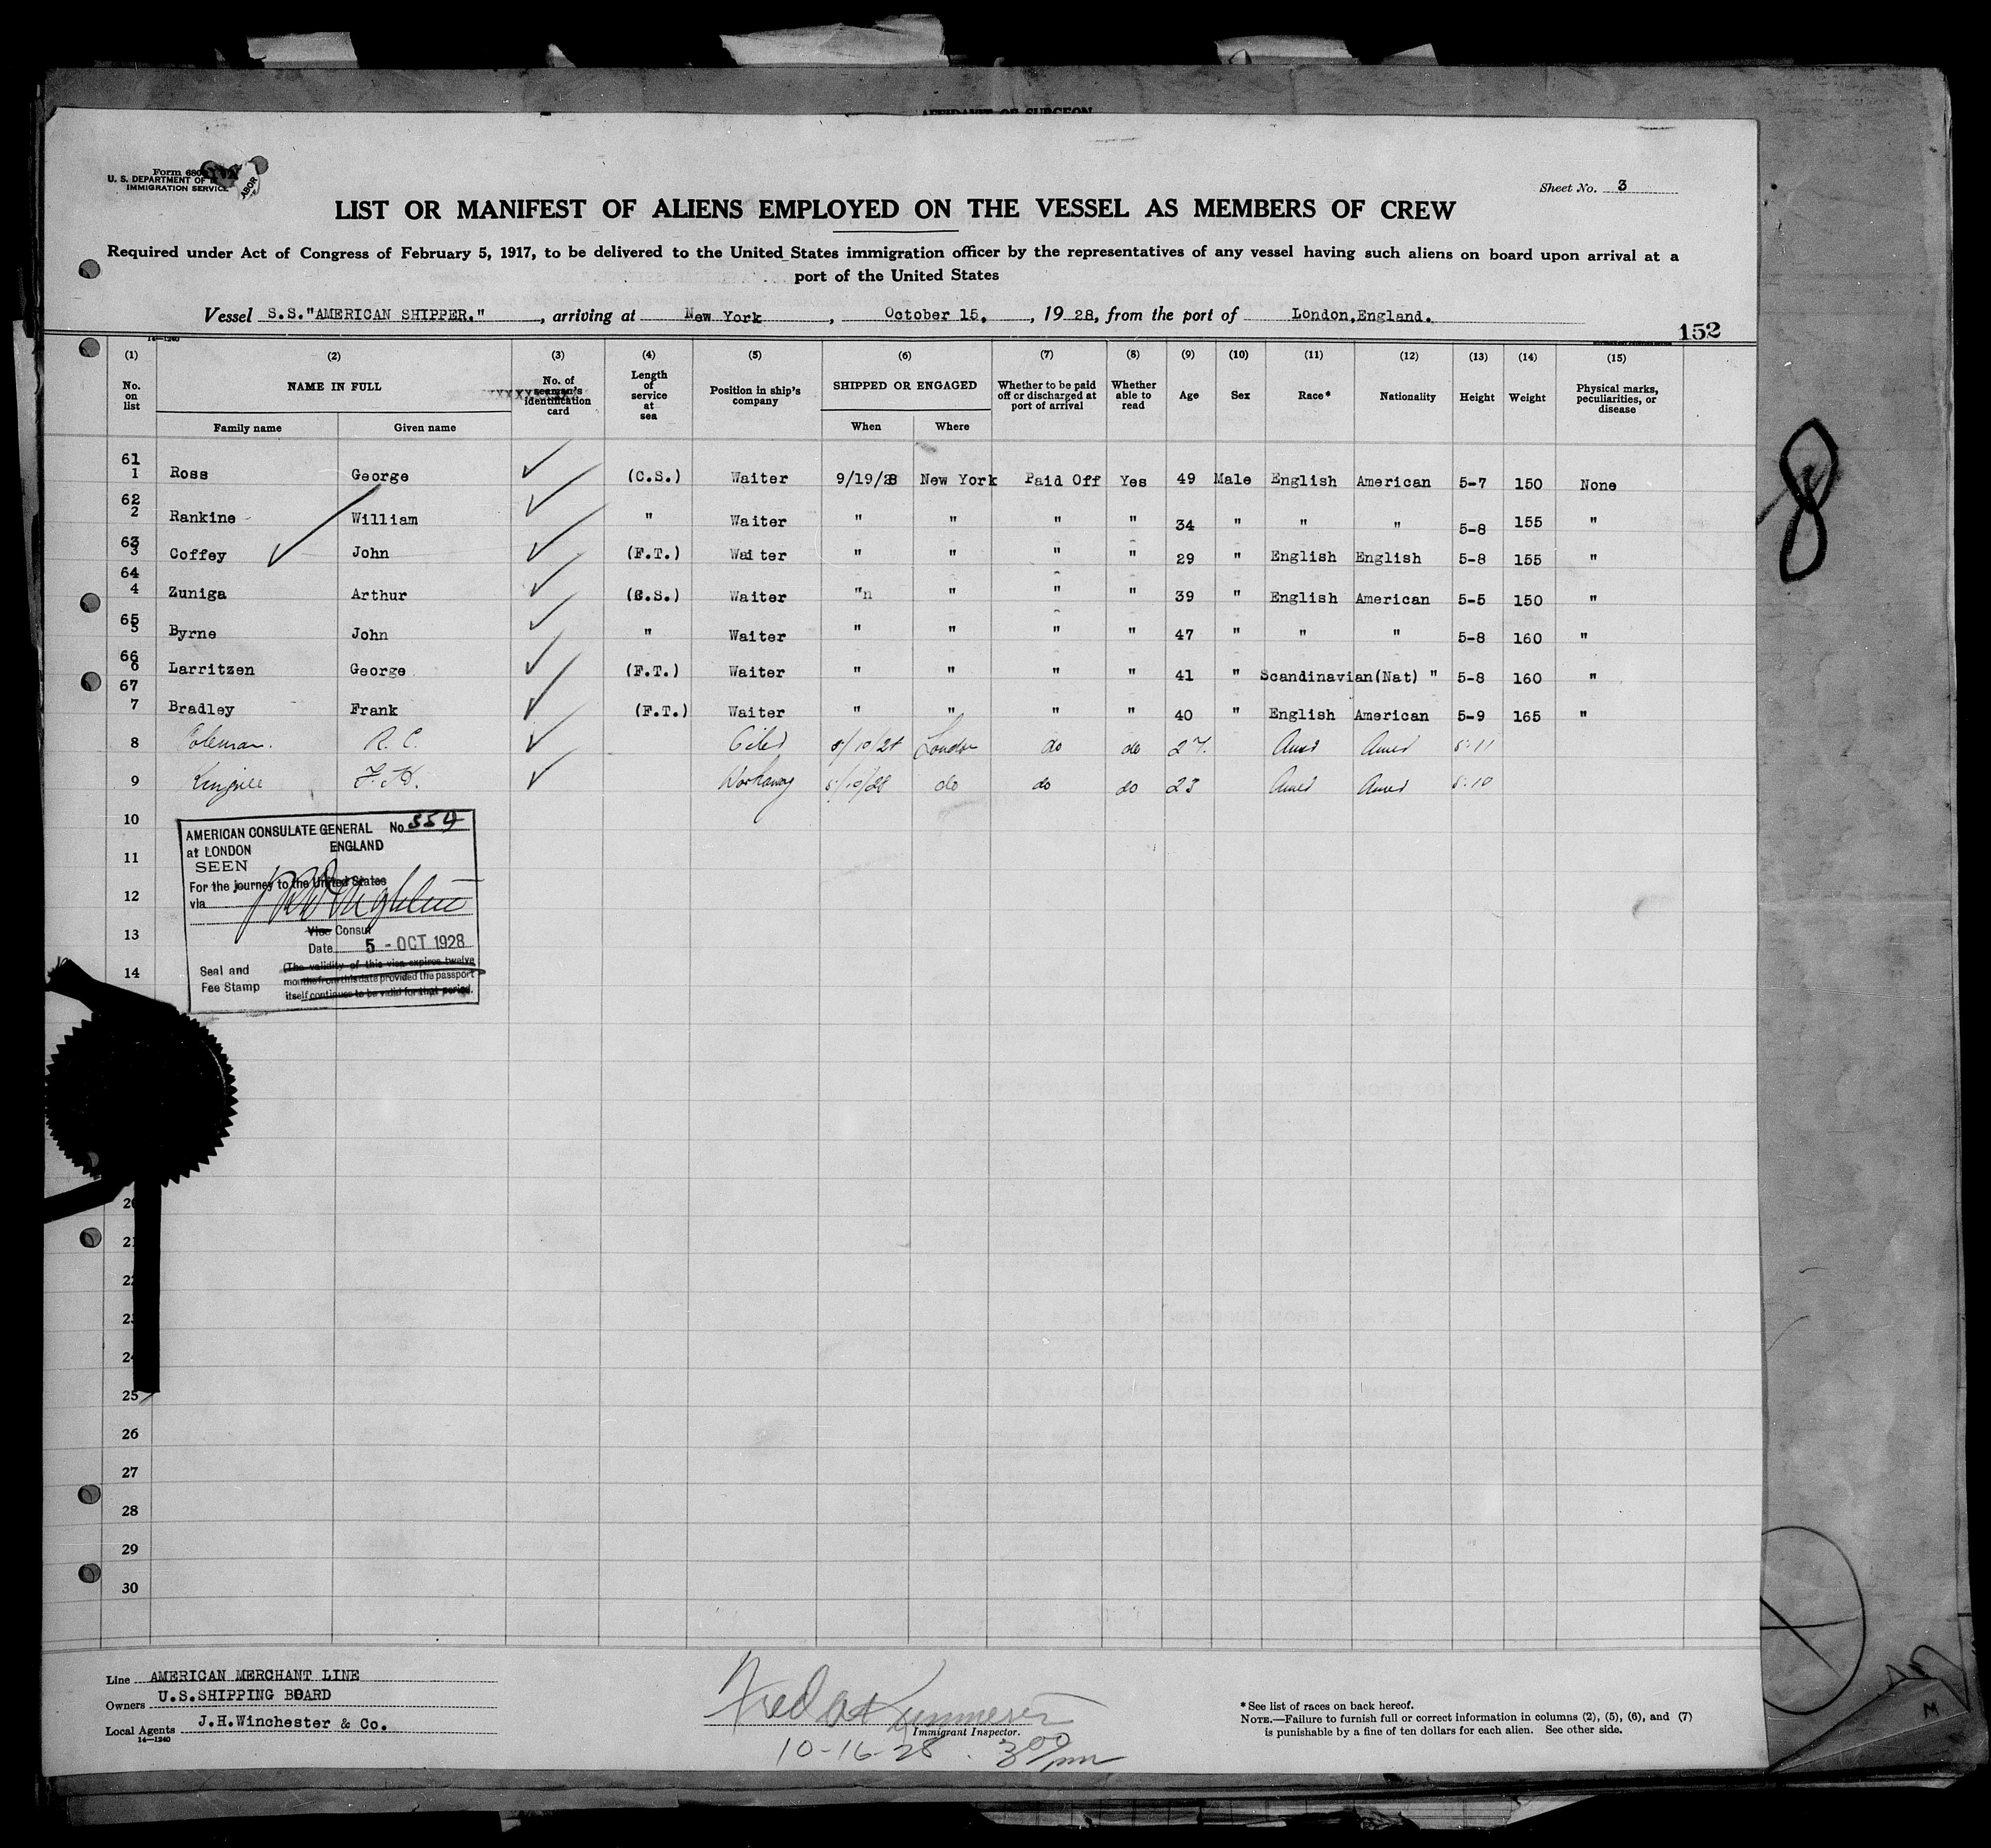 AFFIDAVIT OF SURGEON
Form 680
U. S. DEPARTMENT OF LABOR
IMMIGRATION SERVICE
Sheet No. 3
LIST OR MANIFEST OF ALIENS EMPLOYED ON THE VESSEL AS MEMBERS OF CREW
Required under Act of Congress of February 5, 1917, to be delivered to the United States immigration officer by the representatives of any vessel having such aliens on board upon arrival at a
port of the United States
Vessel S.S."AMERICAN SHIPPER.", arriving at New York, October 15, 1928, from the port of London,England.
152
14—1240
(1) (2) (3) (4) (5) (6) (7) (8) (9) (10) (11) (12) (13) (14) (15)
No. on list NAME IN FULL No. of seaman's identification card Length of service at sea Position in ship's company SHIPPED OR ENGAGED Whether to be paid off or discharged at port of arrival Whether able to read Age Sex Race* Nationality Height Weight Physical marks, peculiarities, or disease
Family name Given name When Where
61 1 Ross George (C.S.) Waiter 9/19/28 New York Paid Off Yes 49 Male English American 5-7 150 None
62 2 Rankine William " Waiter " " " " 34 " " " 5-8 155 "
63 3 Coffey John (F.T.) Waiter " " " " 29 " English English 5-8 155 "
64 4 Zuniga Arthur (C.S.) Waiter " " " " 39 " English American 5-5 150 "
65 5 Byrne John " Waiter " " " " 47 " " " 5-8 160 "
66 6 Larritzen George (F.T.) Waiter " " " " 41 " Scandinavian(Nat) " 5-8 160 "
67 7 Bradley Frank (F.T.) Waiter " " " " 40 " English American 5-9 165 "
8 Coleman. R. C. 5/10/28 London do do 27. Amer Amer 5:11
9 F. H. Workaway 5/10/28 do do do 23 Amer Amer 5:10
10
11
12
13
14
AMERICAN CONSULATE GENERAL No. 554
at LONDON ENGLAND
SEEN
For the journey to the United States
via
Vise Consul
Date 5 - OCT 1928
Seal and Fee Stamp
(The validity of this visa expires twelve
months from this date provided the passport
itself continues to be valid for that period.
20
21
22
23
24
25
26
27
28
29
30
Line AMERICAN MERCHANT LINE
Owners U.S.SHIPPING BOARD
Local Agents J.H.Winchester & Co.
14—1240
Immigrant Inspector.
10-16-28. 3 00 pm
* See list of races on back hereof.
NOTE.—Failure to furnish full or correct information in columns (2), (5), (6), and (7)
is punishable by a fine of ten dollars for each alien. See other side.
8